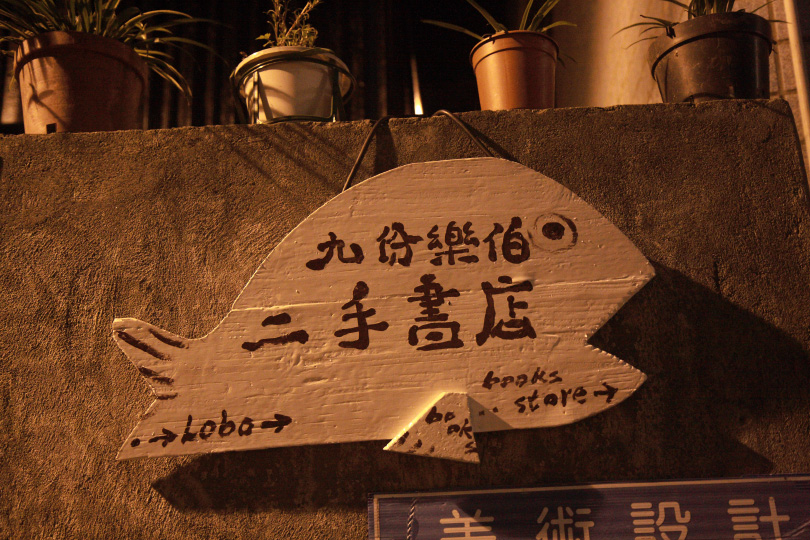 九份樂伯
二手書店
books
store→
→Lobo→
bo
ok
s
美術設計